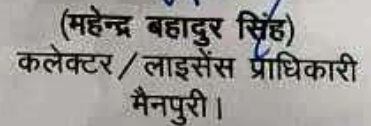 (महेन्द्र बहादुर सिंह)
कलेक्टर / लाइसेंस प्राधिकारी
मैनपुरी।